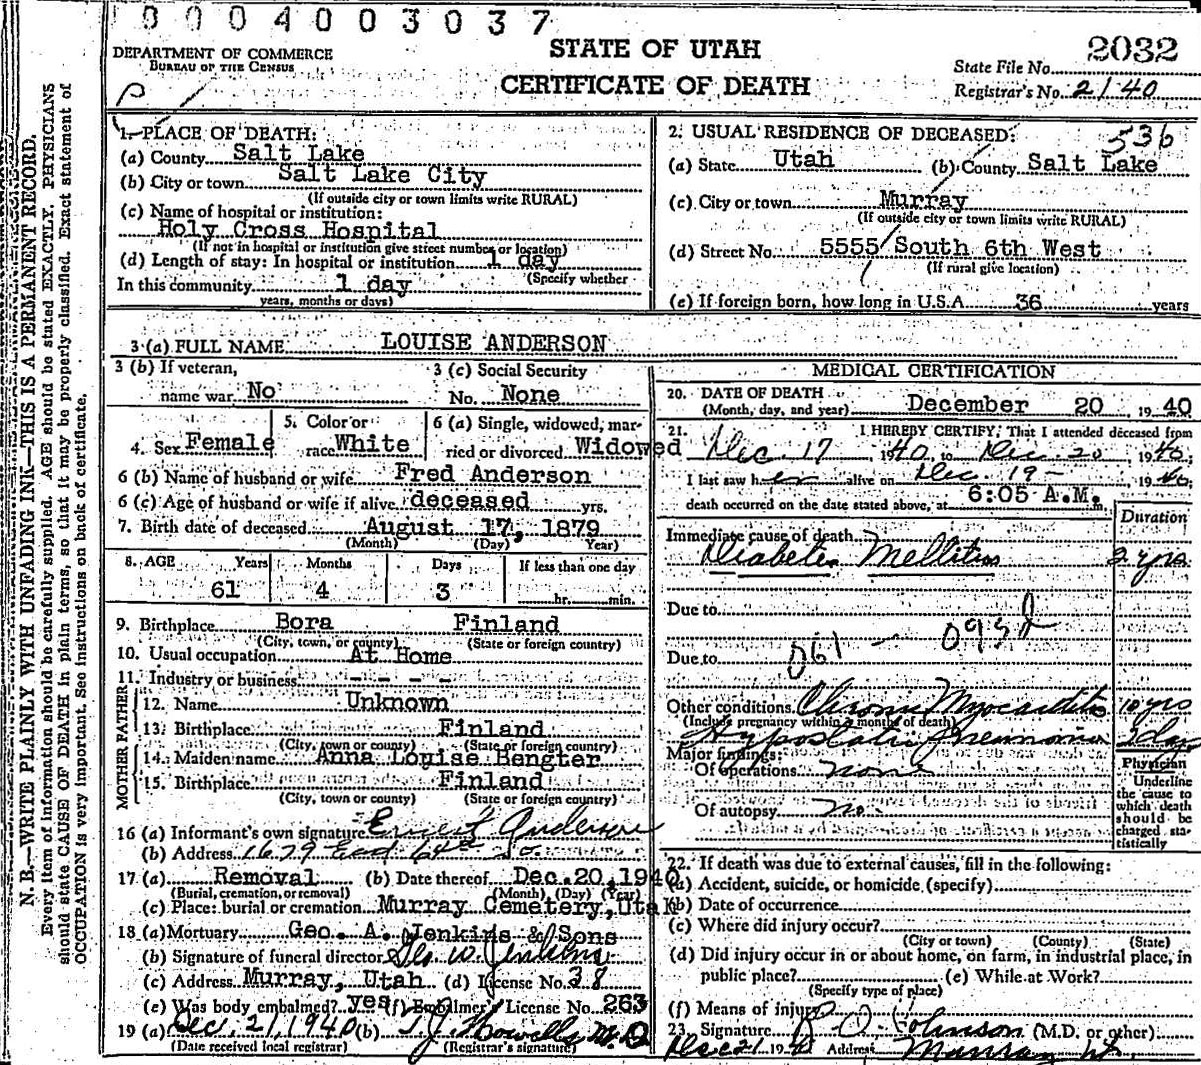 0004003037
DEPARTMENT OF COMMERCE
BUREAU OF THE CENSUS
STATE OF UTAH
CERTIFICATE OF DEATH
2032
State File No.
Registrar's No. 2140
N. B.—WRITE PLAINLY WITH UNFADING INK—THIS IS A PERMANENT RECORD.
Every item of information should be carefully supplied. AGE should be stated EXACTLY. PHYSICIANS
should state CAUSE OF DEATH in plain terms, so that it may be properly classified. Exact statement of
OCCUPATION is very important. See instructions on back of certificate.
1. PLACE OF DEATH:
(a) County Salt Lake
(b) City or town Salt Lake City
(If outside city or town limits write RURAL)
(c) Name of hospital or institution:
Holy Cross Hospital
(If not in hospital or institution give street number or location)
(d) Length of stay: In hospital or institution 1 day
(Specify whether
In this community 1 day
years, months or days)
2. USUAL RESIDENCE OF DECEASED: 536
(a) State Utah (b) County Salt Lake
(c) City or town Murray
(If outside city or town limits write RURAL)
(d) Street No. 5555 South 6th West
(If rural give location)
(e) If foreign born, how long in U.S.A. 36 years
3 (a) FULL NAME LOUISE ANDERSON
3 (b) If veteran,
name war No
3 (c) Social Security
No. None
4. Sex Female
5. Color or
race White
6 (a) Single, widowed, mar-
ried or divorced Widowed
6 (b) Name of husband or wife Fred Anderson
6 (c) Age of husband or wife if alive deceased yrs.
7. Birth date of deceased August 17, 1879
(Month) (Day) (Year)
8. AGE Years Months Days If less than one day
61 4 3 hr. min.
9. Birthplace Bora Finland
(City, town, or county) (State or foreign country)
10. Usual occupation At Home
11. Industry or business - - - -
FATHER
12. Name Unknown
13. Birthplace Finland
(City, town or county) (State or foreign country)
MOTHER
14. Maiden name Anna Louise Bengter
15. Birthplace Finland
(City, town or county) (State or foreign country)
16 (a) Informant's own signature Ernest Anderson
(b) Address 1679 East 64th So.
17 (a) Removal (b) Date thereof Dec. 20, 1940
(Burial, cremation, or removal) (Month) (Day) (Year)
(c) Place: burial or cremation Murray Cemetery, Utah
18 (a) Mortuary Geo. A. Jenkins & Sons
(b) Signature of funeral director Geo W Jenkins
(c) Address Murray, Utah (d) License No. 38
(e) Was body embalmed? yes (f) Embalmer's License No. 263
19 (a) Dec. 21, 1940 (b) T J Howells M.D
(Date received local registrar) (Registrar's signature)
MEDICAL CERTIFICATION
20. DATE OF DEATH
(Month, day, and year) December 20, 1940
21. I HEREBY CERTIFY, That I attended deceased from
Dec. 17 1940, to Dec. 20 1940;
I last saw her alive on Dec. 19 - 1940;
death occurred on the date stated above, at 6:05 A.M. m.
Duration
Immediate cause of death
Diabetes Mellitus 2 yrs
Due to
061 - 093d
Due to
Other conditions Chronic Myocarditis 10 yrs
(Include pregnancy within 3 months of death)
Hypostatic Pneumonia 3 days
Major findings:
Of operations none
Of autopsy no -
Physician
Underline
the cause to
which death
should be
charged sta-
tistically
22. If death was due to external causes, fill in the following:
(a) Accident, suicide, or homicide (specify)
(b) Date of occurrence
(c) Where did injury occur?
(City or town) (County) (State)
(d) Did injury occur in or about home, on farm, in industrial place, in
public place? (e) While at Work?
(Specify type of place)
(f) Means of injury
23. Signature R. O. Johnson (M.D. or other)
Dec 21 1940 Address Murray Ut.